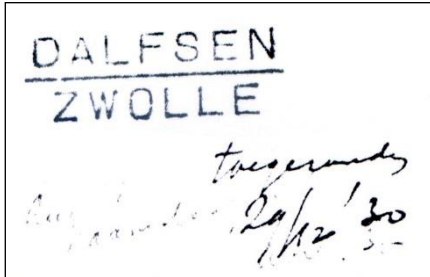 DALFSEN
ZWOLLE
toegezonden
29/12 '30